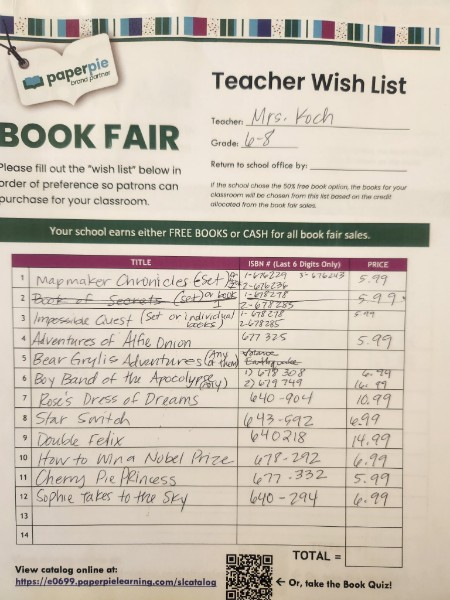 paperpie
brand partner
Teacher Wish List
BOOK FAIR
Teacher: Mrs. Koch
Grade: 6-8
Return to school office by:
Please fill out the "wish list" below in
order of preference so patrons can
purchase for your classroom.
If the school chose the 50% free book option, the books for your
classroom will be chosen from this list based on the credit
allocated from the book fair sales.
Your school earns either FREE BOOKS or CASH for all book fair sales.
TITLE ISBN # (Last 6 Digits Only) PRICE
1 Mapmaker Chronicles (Set) 1-676229 3-676243 5.99
2-676236
2 Book of Secrets (set) or book 1 1-678278 5.99
2-678285
3 Impossible Quest (Set or individual books) 1-678278 5.99
2-678285
4 Adventures of Alfie Onion 677325 5.99
5 Bear Grylls Adventures (Any of them) Earthquake
6 Boy Band of the Apocalypse 1) 678308 6.99
2) 679749
7 Rose's Dress of Dreams 640-904 10.99
8 Star Switch 643-592 6.99
9 Double Felix 640218 14.99
10 How to Win a Nobel Prize 678-292 6.99
11 Cherry Pie Princess 677-332 5.99
12 Sophie Takes to the Sky 640-294 6.99
13
14
TOTAL =
View catalog online at:
https://e0699.paperpielearning.com/slcatalog
← Or, take the Book Quiz!